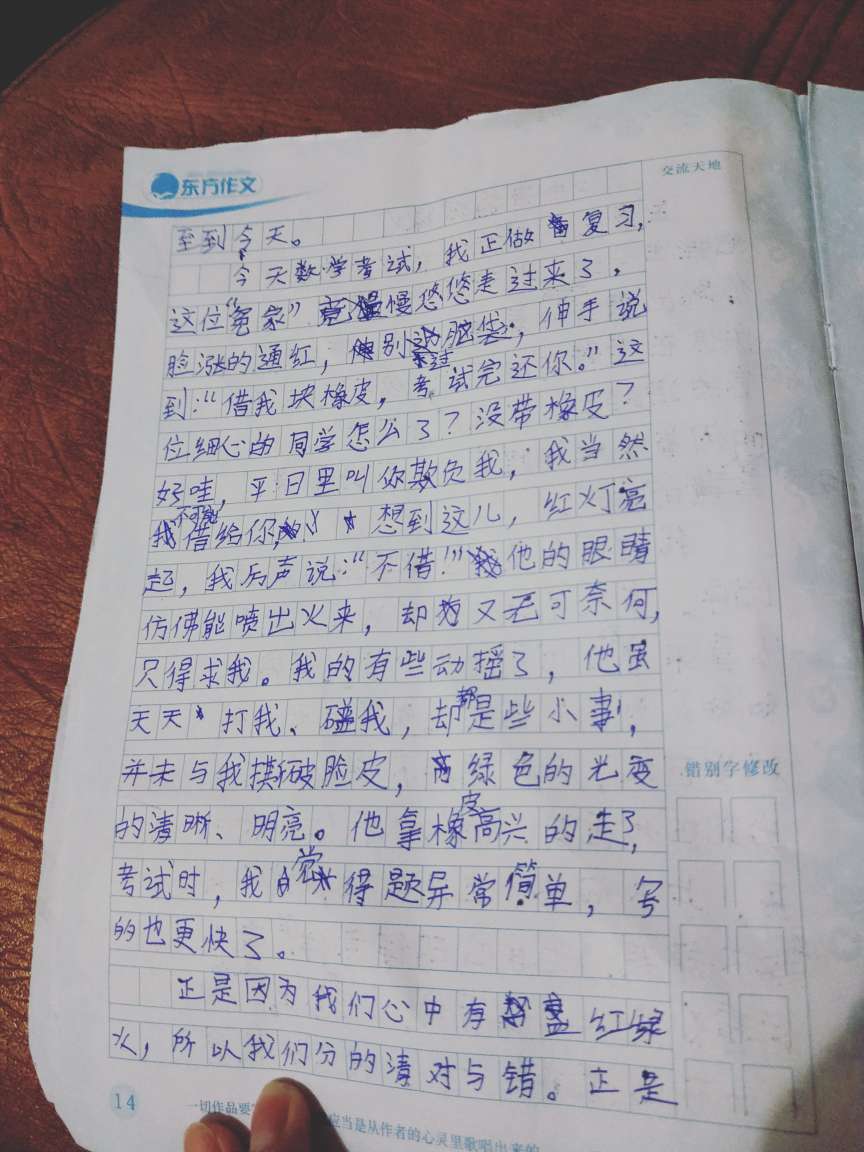 东方作文
交流天地
至到今天。
今天数学考试，我正做复习，
这位“冤家”竟慢悠悠走过来了，
脸涨的通红，别过脑袋，伸手说
到：“借我块橡皮，考试完还你。”这
位细心的同学怎么了？没带橡皮？
好哇，平日里叫你欺负我，我当然
不可能借给你，想到这儿，红灯亮
起，我厉声说：“不借！”他的眼睛
仿佛能喷出火来，却又无可奈何，
只得求我。我的有些动摇了，他虽
天天打我、碰我，却都是些小事，
并未与我撕破脸皮，绿色的光变
的清晰、明亮。他拿橡皮高兴的走了，
考试时，我觉得题异常简单，写
的也更快了。
正是因为我们心中有盏红绿
火，所以我们分的清对与错。正是
错别字修改
14
一切作品要
应当是从作者的心灵里歌唱出来的